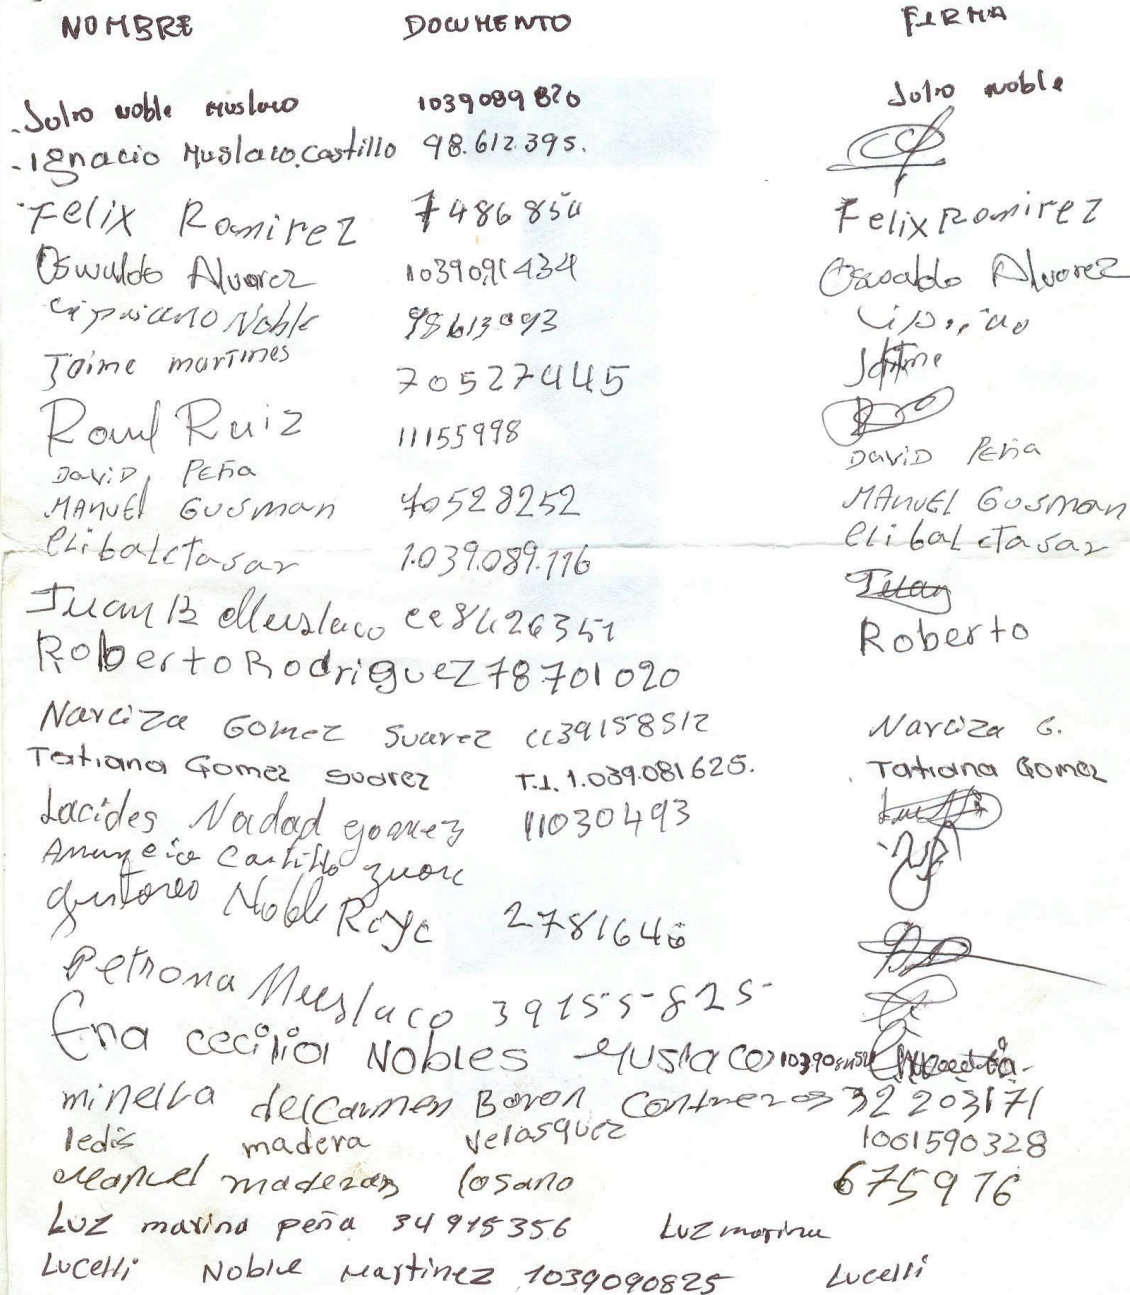 NOMBRE DOCUMENTO FIRMA
Julio noble Muslaco 1039089820 Julio noble
Ignacio Muslaco.Castillo 98.612.395.
Felix Ramirez 7486850 Felix Ramirez
Oswaldo Alvarez 1039091434 Oswaldo Alvarez
Cipriano Noble 98613093
Jaime martines 70527445 Jaime
Raul Ruiz 11155998
DaviD PEña DaviD PEña
MAnuEl Gusman 70528252 MAnuEl Gusman
elibaletasar 1.039.089.116 elibaletasar
Juan B Muslaco cc 8426351 Juan
Roberto Rodriguez 78701020 Roberto
Narciza Gomez Suarez cc39158512 Narciza G.
Tatiana Gomez suarez T.I. 1.039.081625. Tatiana Gomez
Lacides Nadad gomez 11030493
Castillo
Noble 2781646
Petrona Muslaco 39155825
Ena cecilia NObLES Muslaco
minelba delcarmen Baron Contreras 32203171
ledis madera velasquez 1001590328
Manuel maderas losano 675976
Luz marina peña 34975356 Luz marina
Lucelli Noble Martinez 1039090825 Lucelli